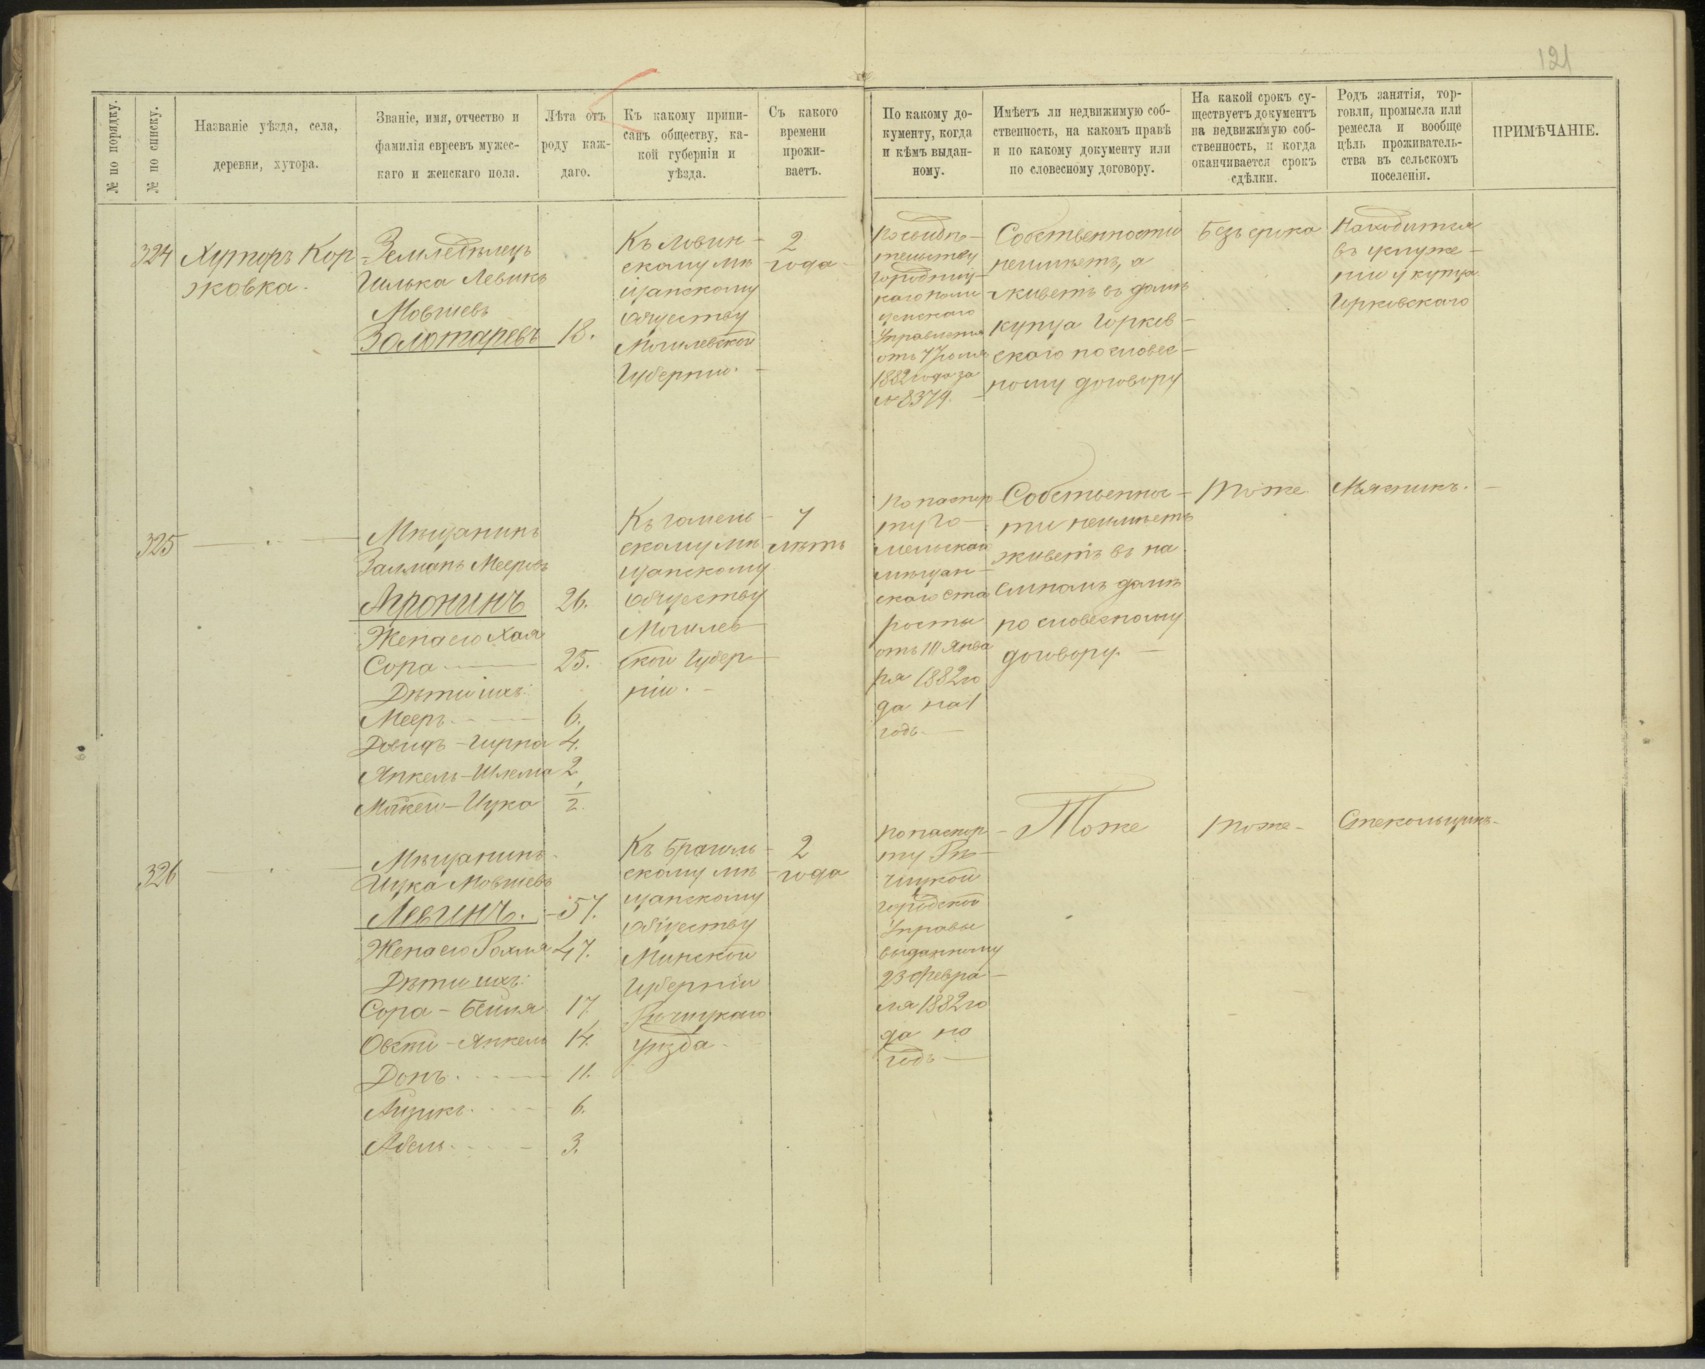 121
№ по порядку.
№ по списку.
Названіе уѣзда, села,
деревни, хутора.
Званіе, имя, отчество и
фамилія евреевъ мужес-
каго и женскаго пола.
Лѣта отъ
роду каж-
даго.
Къ какому припи-
санъ обществу, ка-
кой губерніи и
уѣзда.
Съ какого
времени
прожи-
ваетъ.
По какому до-
кументу, когда
и кѣмъ выдан-
ному.
Имѣетъ ли недвижимую соб-
ственность, на какомъ правѣ
и по какому документу или
по словесному договору.
На какой срокъ су-
ществуетъ документъ
на недвижимую соб-
ственность, и когда
оканчивается срокъ
сдѣлки.
Родъ занятія, тор-
говли, промысла или
ремесла и вообще
цѣль проживатель-
ства въ сельскомъ
поселеніи.
ПРИМѢЧАНІЕ.
324
Хуторъ Кор-
жовка.
Земледѣлецъ
Гилька Левикъ
Мовшевъ
Золотаревъ 18.
скому мѣ
щанскому
обществу
Могилевской
Губерніи.
2
года
По свидѣ-
тельству
Городниц-
каго поли
цейскаго
Управленія
отъ 7 Іюля
1882 года за
№ 8379.
Собственности
неимѣетъ, а
живетъ въ домѣ
купца
скаго по словес-
ному договору
Безъ срока
Находится
въ услуже-
ніи у купца
325
Мѣщанинъ
Залманъ Мееровъ
Аронинъ 26.
Жена его Хая
Сора 25.
Дѣти ихъ:
Мееръ 6.
Довидъ-Гирша 4.
Янкель-Шлема 2
½.
Къ гомель-
скому мѣ
щанскому
обществу
Могилев-
ской Губер-
ніи.
7
лѣтъ
По паспор
ту Го-
мельскаго
мѣщан-
скаго ста
росты
отъ 10 Янва
ря 1882 го
да на 1
годъ.
Собственнос-
ти неимѣетъ
живетъ въ на
емномъ домѣ
по словесному
договору.
тоже
Мясникъ.
326
Мѣщанинъ
Ицка Мовшевъ
Левинъ. 57.
Жена его Рохля 47.
Дѣти ихъ:
Сора-Бейля 17
Овсѣй-Янкель 14.
Донъ. 11.
Айзикъ. 6.
Абель. 3.
Къ Брагин-
скому мѣ
щанскому
обществу
Минской
Губерніи
Рѣчицкаго
уѣзда.
2
года
по паспор-
ту Рѣ-
чицкой
Городской
Управы
выданному
23 Февра-
ля 1882 го
да на
годъ
Тоже
тоже
Стекольщикъ